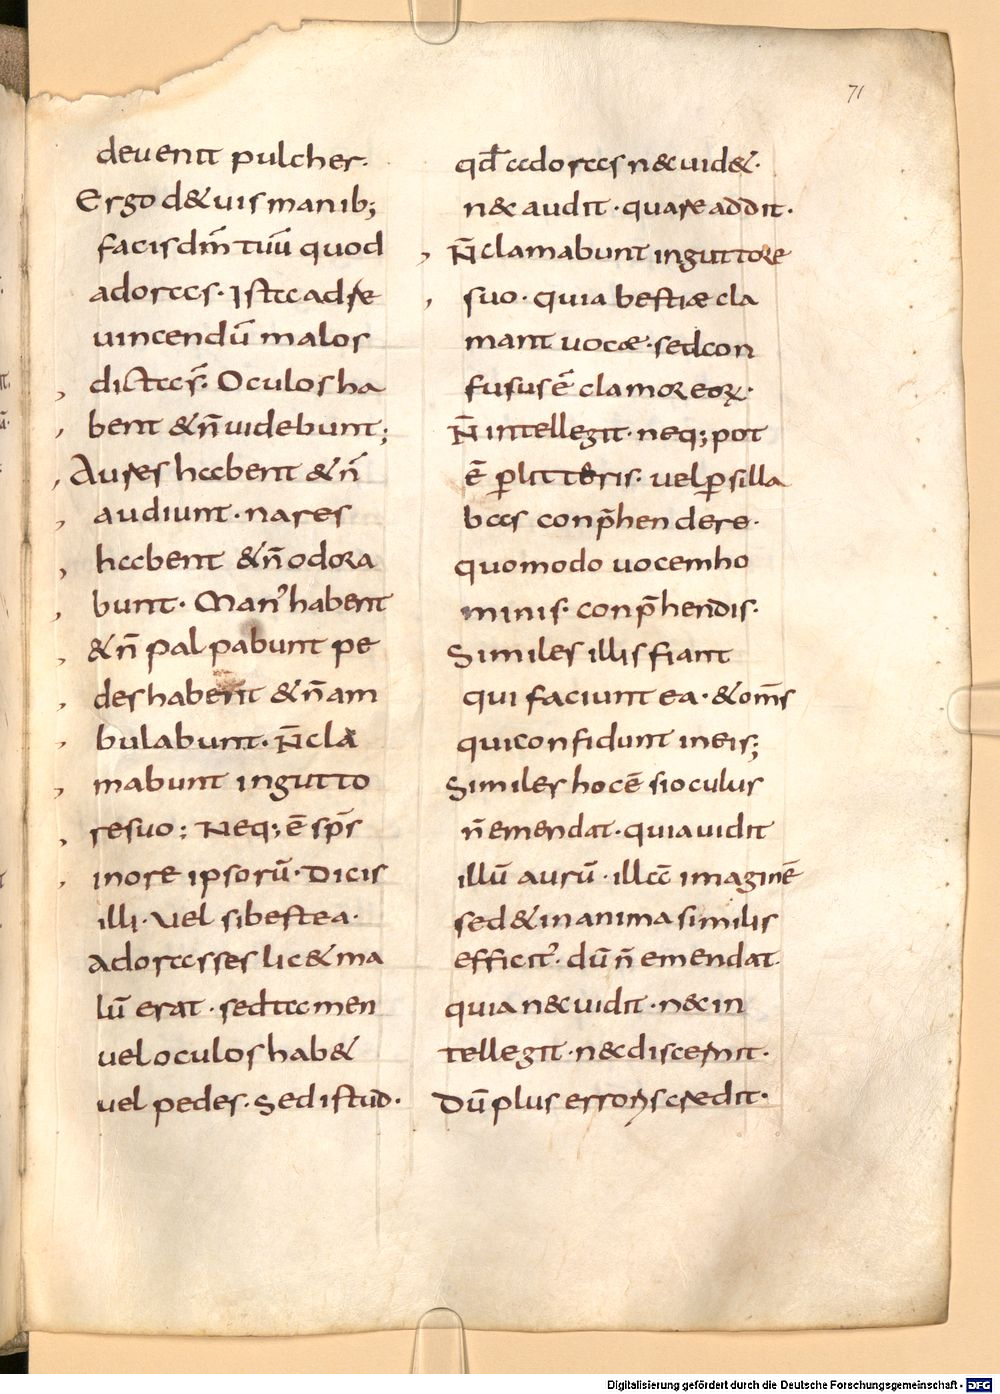 71
deuenit pulcher·
Ergo d&uis manib;
facis dm̄ tuū quod
adoras· Ista ad re
uincendū malos
dicta s̄· Oculos ha
bent &n̄ uidebunt;
Aures habent &n̄
audiunt· nares
habent &n̄ odora
bunt· Man' habent
&n̄ palpabunt pe
des habent &n̄ am
bulabunt· N̄ cla
mabunt in gutto
re suo; Neq; ē sp̄s
in ore ipsorū· Dicis
illi· Vel si bestea·
adorasses lic& ma
lū erat· sed tamen
uel oculos hab&
uel pedes· Sed istud·
qd̄ adoras n&uid&·
n&audit· quare addit·
N̄ clamabunt in guttore
suo· quia bestiæ cla
mant uocæ· sed con
fusus ē clamor eoꝝ·
N̄ intellegit· neq; pot
ē ꝑ litteris· uel ꝑ silla
bas conp̄hendere·
quomodo uocem ho
minis· conp̄hendis·
Similes illis fiant
qui faciunt ea· &om̄s
qui confidunt in eis;
Similes hoc ē si oculus
n̄ emendat· quia uidit
illū aurū· illā imaginē
sed &in anima similis
efficit'· dū n̄ emendat·
quia n&uidit· n&in
tellegit· n&discernit·
Dū plus erroris credit·
Digitalisierung gefördert durch die Deutsche Forschungsgemeinschaft - DFG